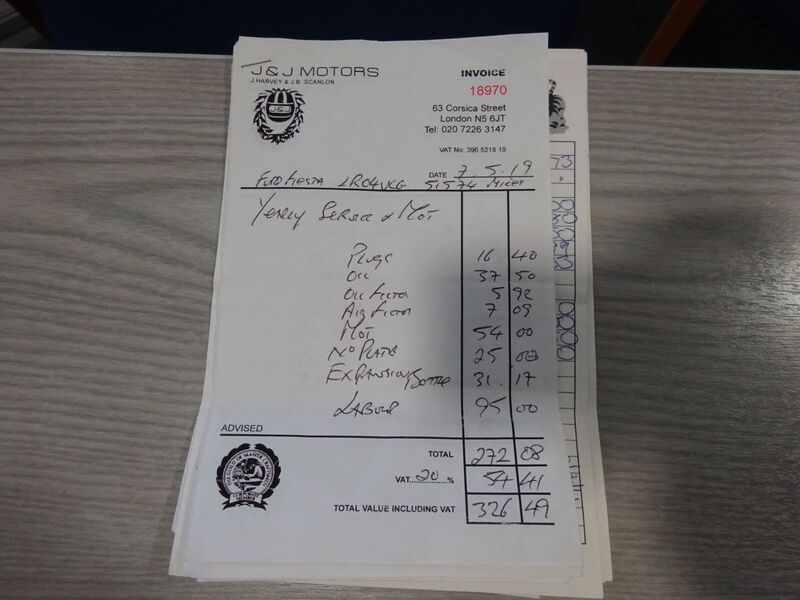 J&J MOTORS
J.HARVEY & J.B. SCANLON
J&J
INVOICE
18970
63 Corsica Street
London N5 6JT
Tel: 020 7226 3147
VAT No: 396 5218 19
DATE 7.5.19
Ford Fiesta LR04VCG 51574 Miles
Yearly Service & MOT
Plugs 16 40
Oil 37 50
Oil Filter 5 92
Air Filter 7 09
MOT 54 00
No Plate 25 00
Expansion Bottle 31.17
Labour 95 00
ADVISED
TOTAL 272 08
VAT 20 % 54 41
TOTAL VALUE INCLUDING VAT 326 49
THE GUILD OF MASTER CRAFTSMEN
73
p